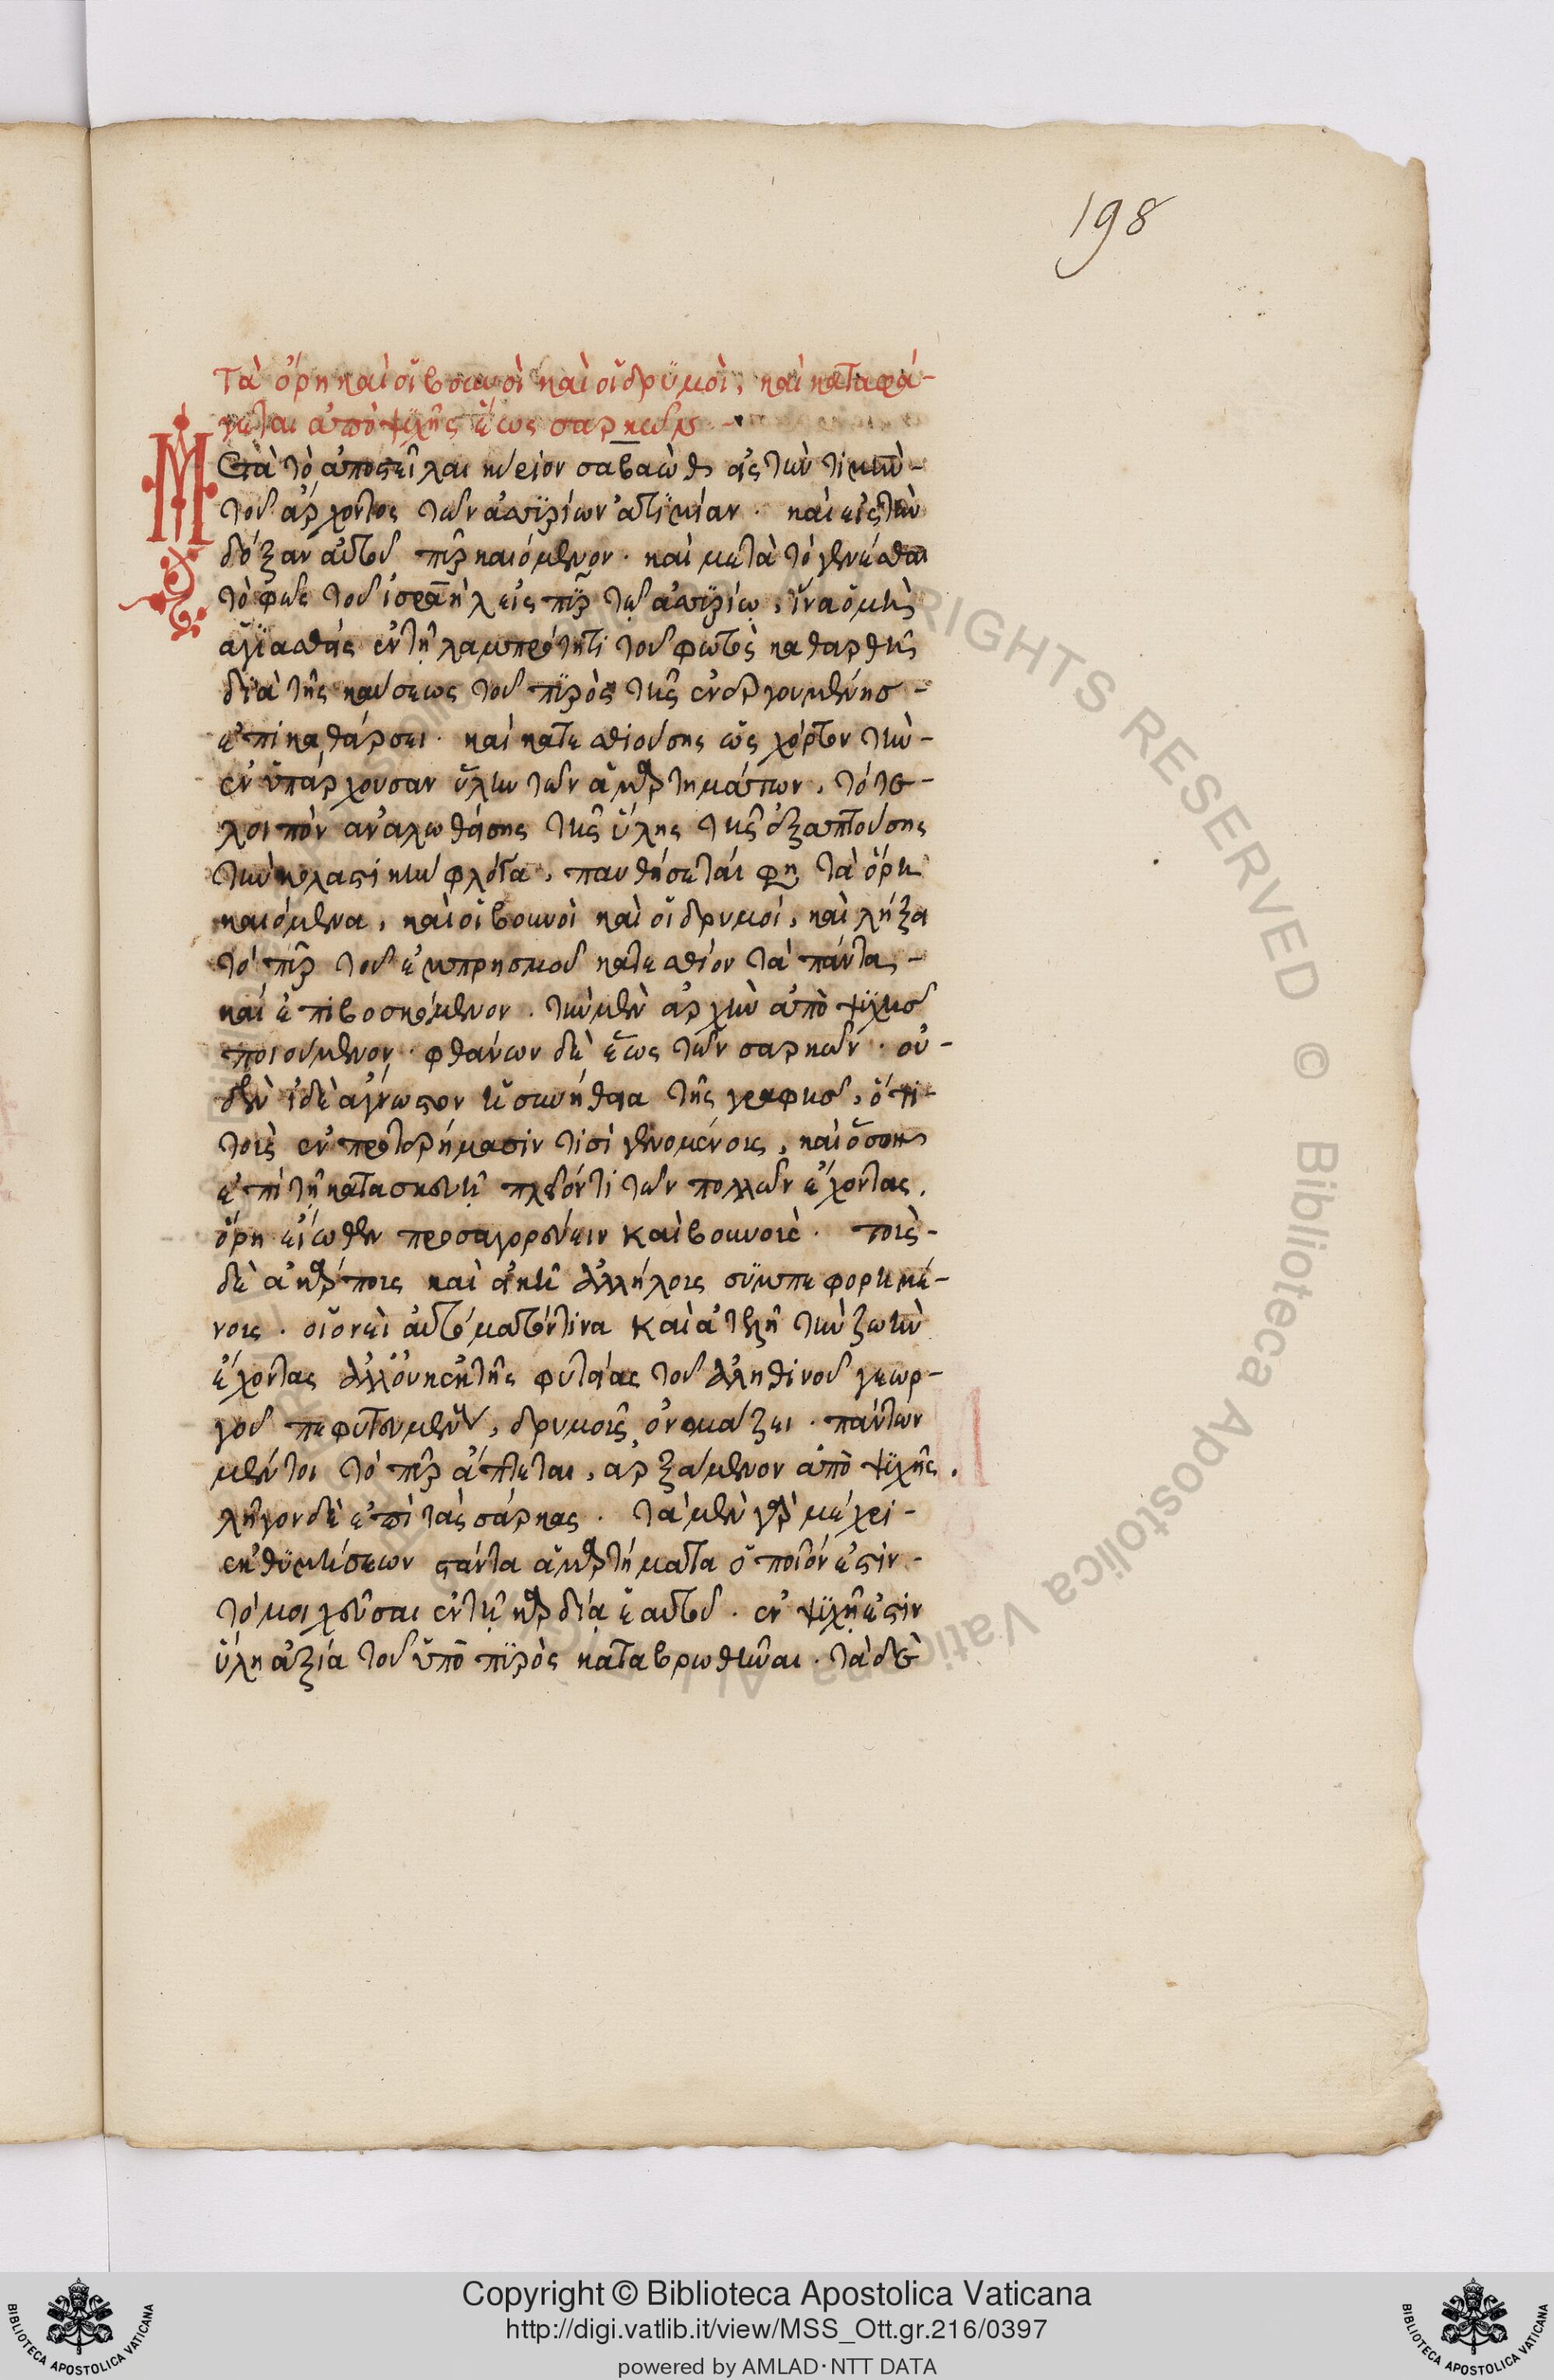 198
Τὰ ὄρη καὶ οἱ βουνοὶ καὶ οἱ δρυμοὶ, καὶ καταφά-
γεται ἀπὸ ψυχῆς ἕως σαρκῶν
Μετὰ τὸ ἀποστεῖλαι κύριον σαβαὼθ εἰς τὴν τιμὴν
τοῦ ἄρχοντος τῶν ἀσσυρίων ἀτιμίαν. καὶ εἰς τὴν
δόξαν αὐτοῦ πῦρ καιόμενον. καὶ μετὰ τὸ γενέσθαι
τὸ φῶς τοῦ ἰσραὴλ εἰς πῦρ τῷ ἀσσυρίῳ, ἵνα ὁ μὴ
ἁγιασθεὶς ἐν τῇ λαμπρότητι τοῦ φωτὸς καθαρθῇ
διὰ τῆς καύσεως τοῦ πυρὸς τῆς ἐνεργουμένης
ἐπὶ καθάρσει. καὶ κατεσθιούσης ὡς χόρτον τὴν
ἐνυπάρχουσαν ὕλην τῶν ἁμαρτημάτων, τότε
λοιπὸν ἀναλωθείσης τῆς ὕλης τῆς ἐξαπτούσης
τὴν κολαστικὴν φλόγα, παυθήσεται φη τὰ ὄρη
καιόμενα, καὶ οἱ βουνοὶ καὶ οἱ δρυμοί, καὶ λήξει
τὸ πῦρ τοῦ ἐμπρησμοῦ κατεσθίον τὰ πάντα
καὶ ἐπιβοσκόμενον. τὴν μὲν ἀρχὴν ἀπὸ ψυχῆς
ποιούμενον. φθάνων δὲ ἕως τῶν σαρκῶν. οὐ-
δὲν ἰδὲ ἄγνωστον ἡ συνήθεια τῆς γραφῆς, ὅτι
τοῖς ἐν προτερήμασιν τισὶ γενομένοις, καὶ ὄγκον
ἐπὶ τῇ κατασκευῇ πλέοντι τῶν πολλῶν ἔχοντας,
ὄρη εἴωθεν προσαγορεύειν καὶ βουνοὺς. τοῖς
δὲ ἀκάρποις καὶ εἰκῆ ἀλλήλοις συμπεφορημέ-
νοις. οἱονεὶ αὐτόματόν τινα καὶ ἀτελῆ τὴν ζωὴν
ἔχοντας ἀλλ' οὐκ ἐκ τῆς φυτείας τοῦ ἀληθινοῦ γεωρ-
γοῦ πεφυτευμένην, δρυμοὺς ὀνομάζει. πάντων
μέντοι τὸ πῦρ ἅπτεται, ἀρξάμενον ἀπὸ ψυχῆς,
λῆγον δὲ ἐπὶ τὰς σάρκας. τὰ μὲν γὰρ μέχρι
ἐνθυμήσεων πάντα ἁμαρτήματα ὁποῖόν ἐστιν
τὸ μοιχεῦσαι ἐν τῇ καρδίᾳ ἑαυτοῦ. ἐν ψυχῇ ἐστιν
ὕλη ἀξία τοῦ ὑπὸ πυρὸς καταβρωθῆναι. τὰ δὲ
RIGHTS RESERVED © Biblioteca Apostolica Vaticana
Copyright © Biblioteca Apostolica Vaticana
http://digi.vatlib.it/view/MSS_Ott.gr.216/0397
powered by AMLAD·NTT DATA
BIBLIOTECA APOSTOLICA VATICANA
BIBLIOTECA APOSTOLICA VATICANA